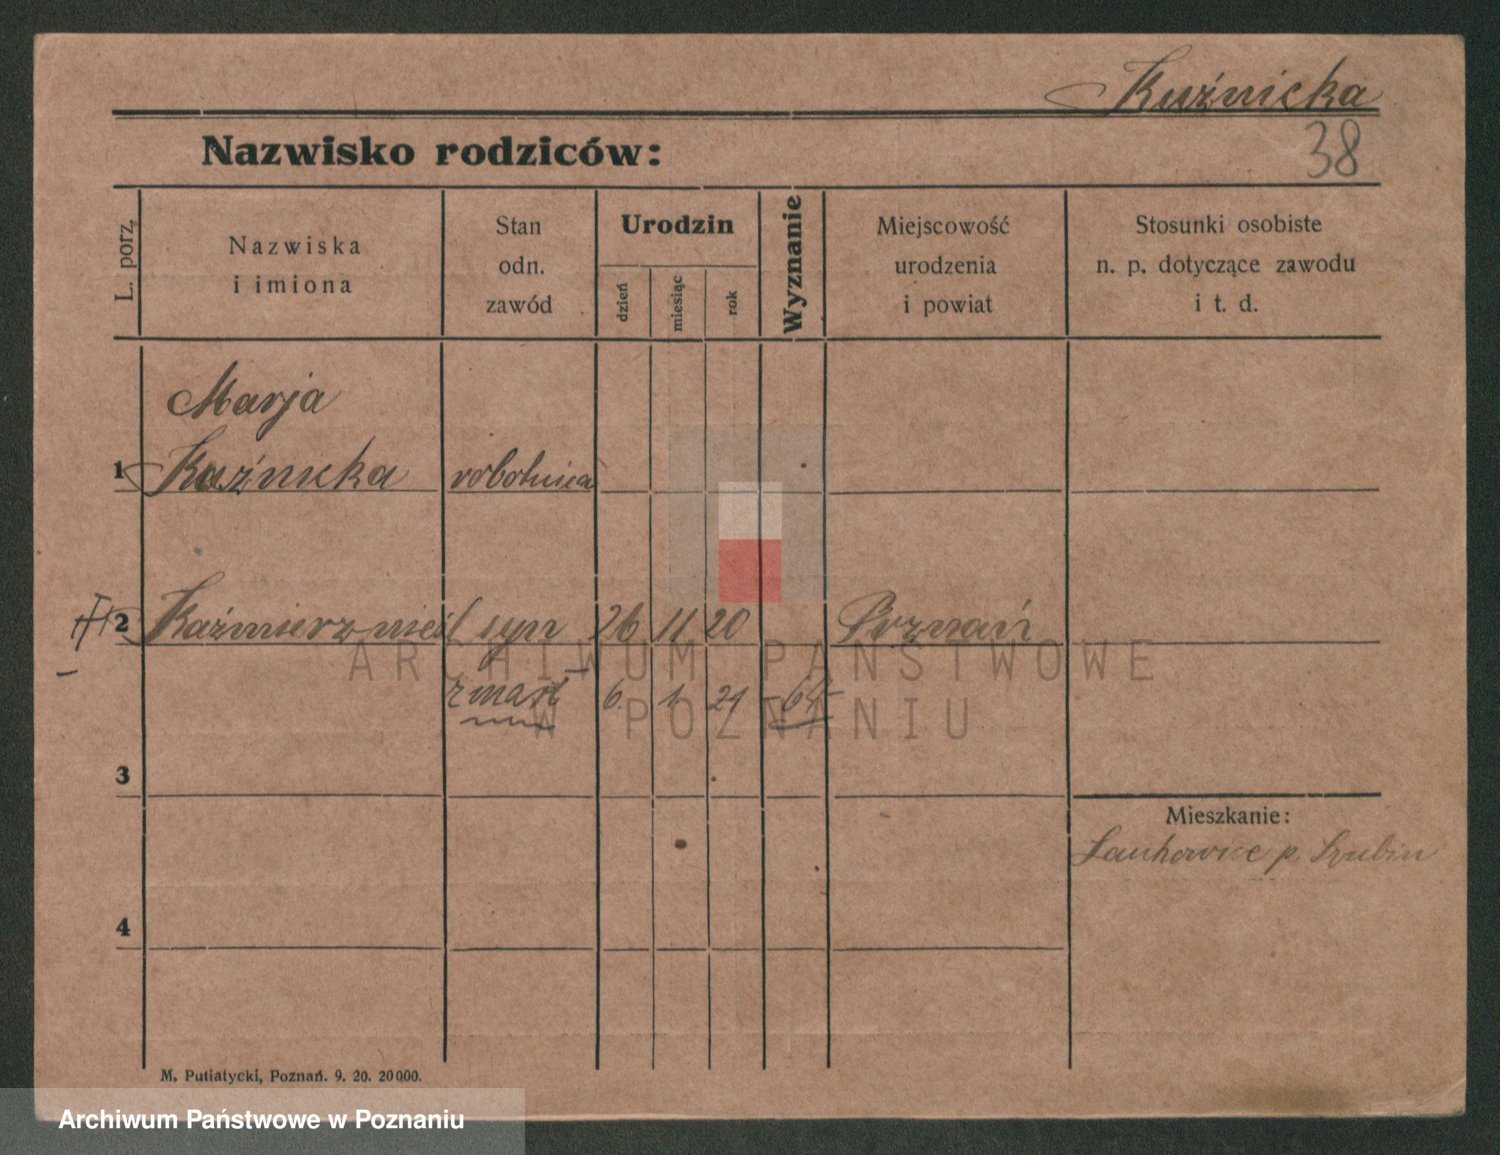 Kuźnicka
38
Nazwisko rodziców:
L. porz.
Nazwiska
i imiona
Stan
odn.
zawód
Urodzin
dzień
miesiąc
rok
Wyznanie
Miejscowość
urodzenia
i powiat
Stosunki osobiste
n. p. dotyczące zawodu
i t. d.
Marja
1 Kuźnicka robotnica
2 Kaźmierz syn 26 11 20 Poznań
zmarł 6. 1 21 64
ARCHIWUM PAŃSTWOWE
W POZNANIU
3
Mieszkanie:
p. Szubin
4
M. Putiatycki, Poznań. 9. 20. 20000.
Archiwum Państwowe w Poznaniu